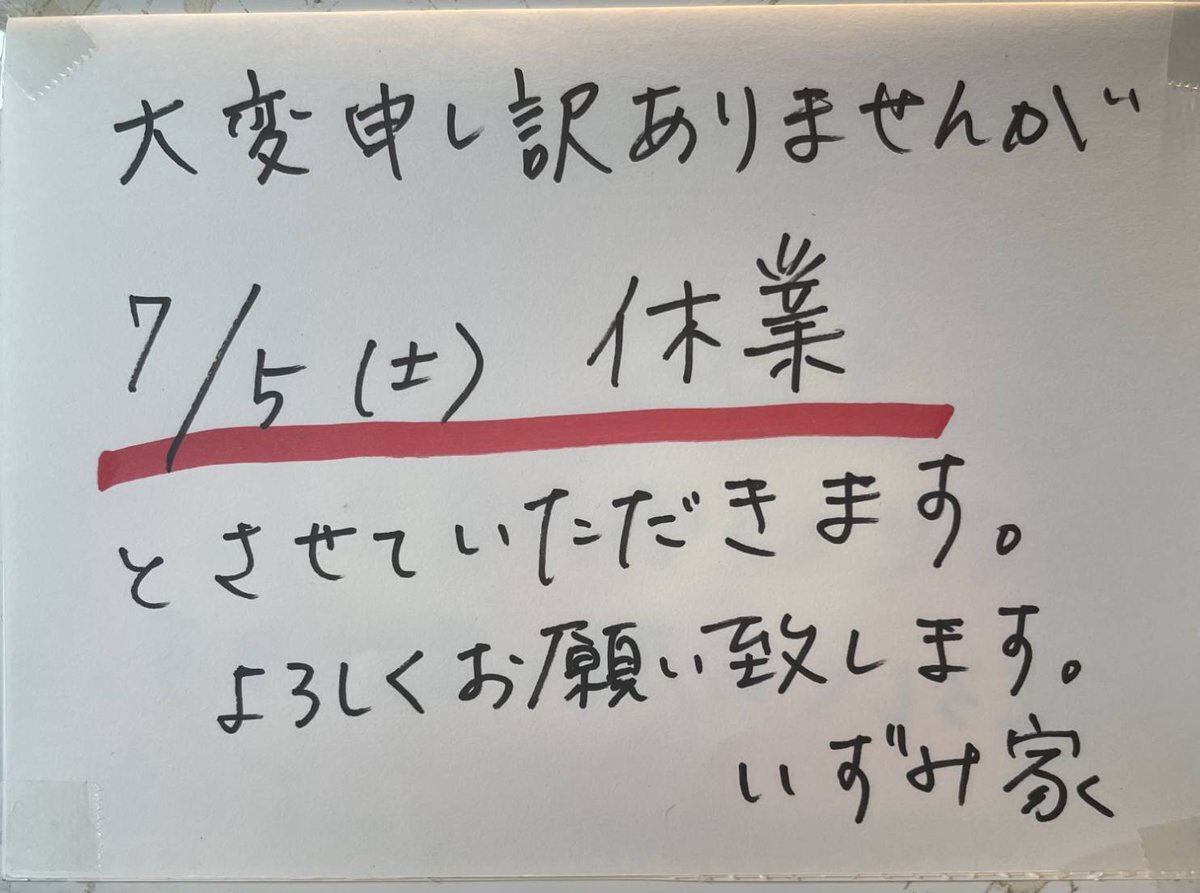 大変申し訳ありませんが
7/5(土) 休業
とさせていただきます。
よろしくお願い致します。
いずみ家